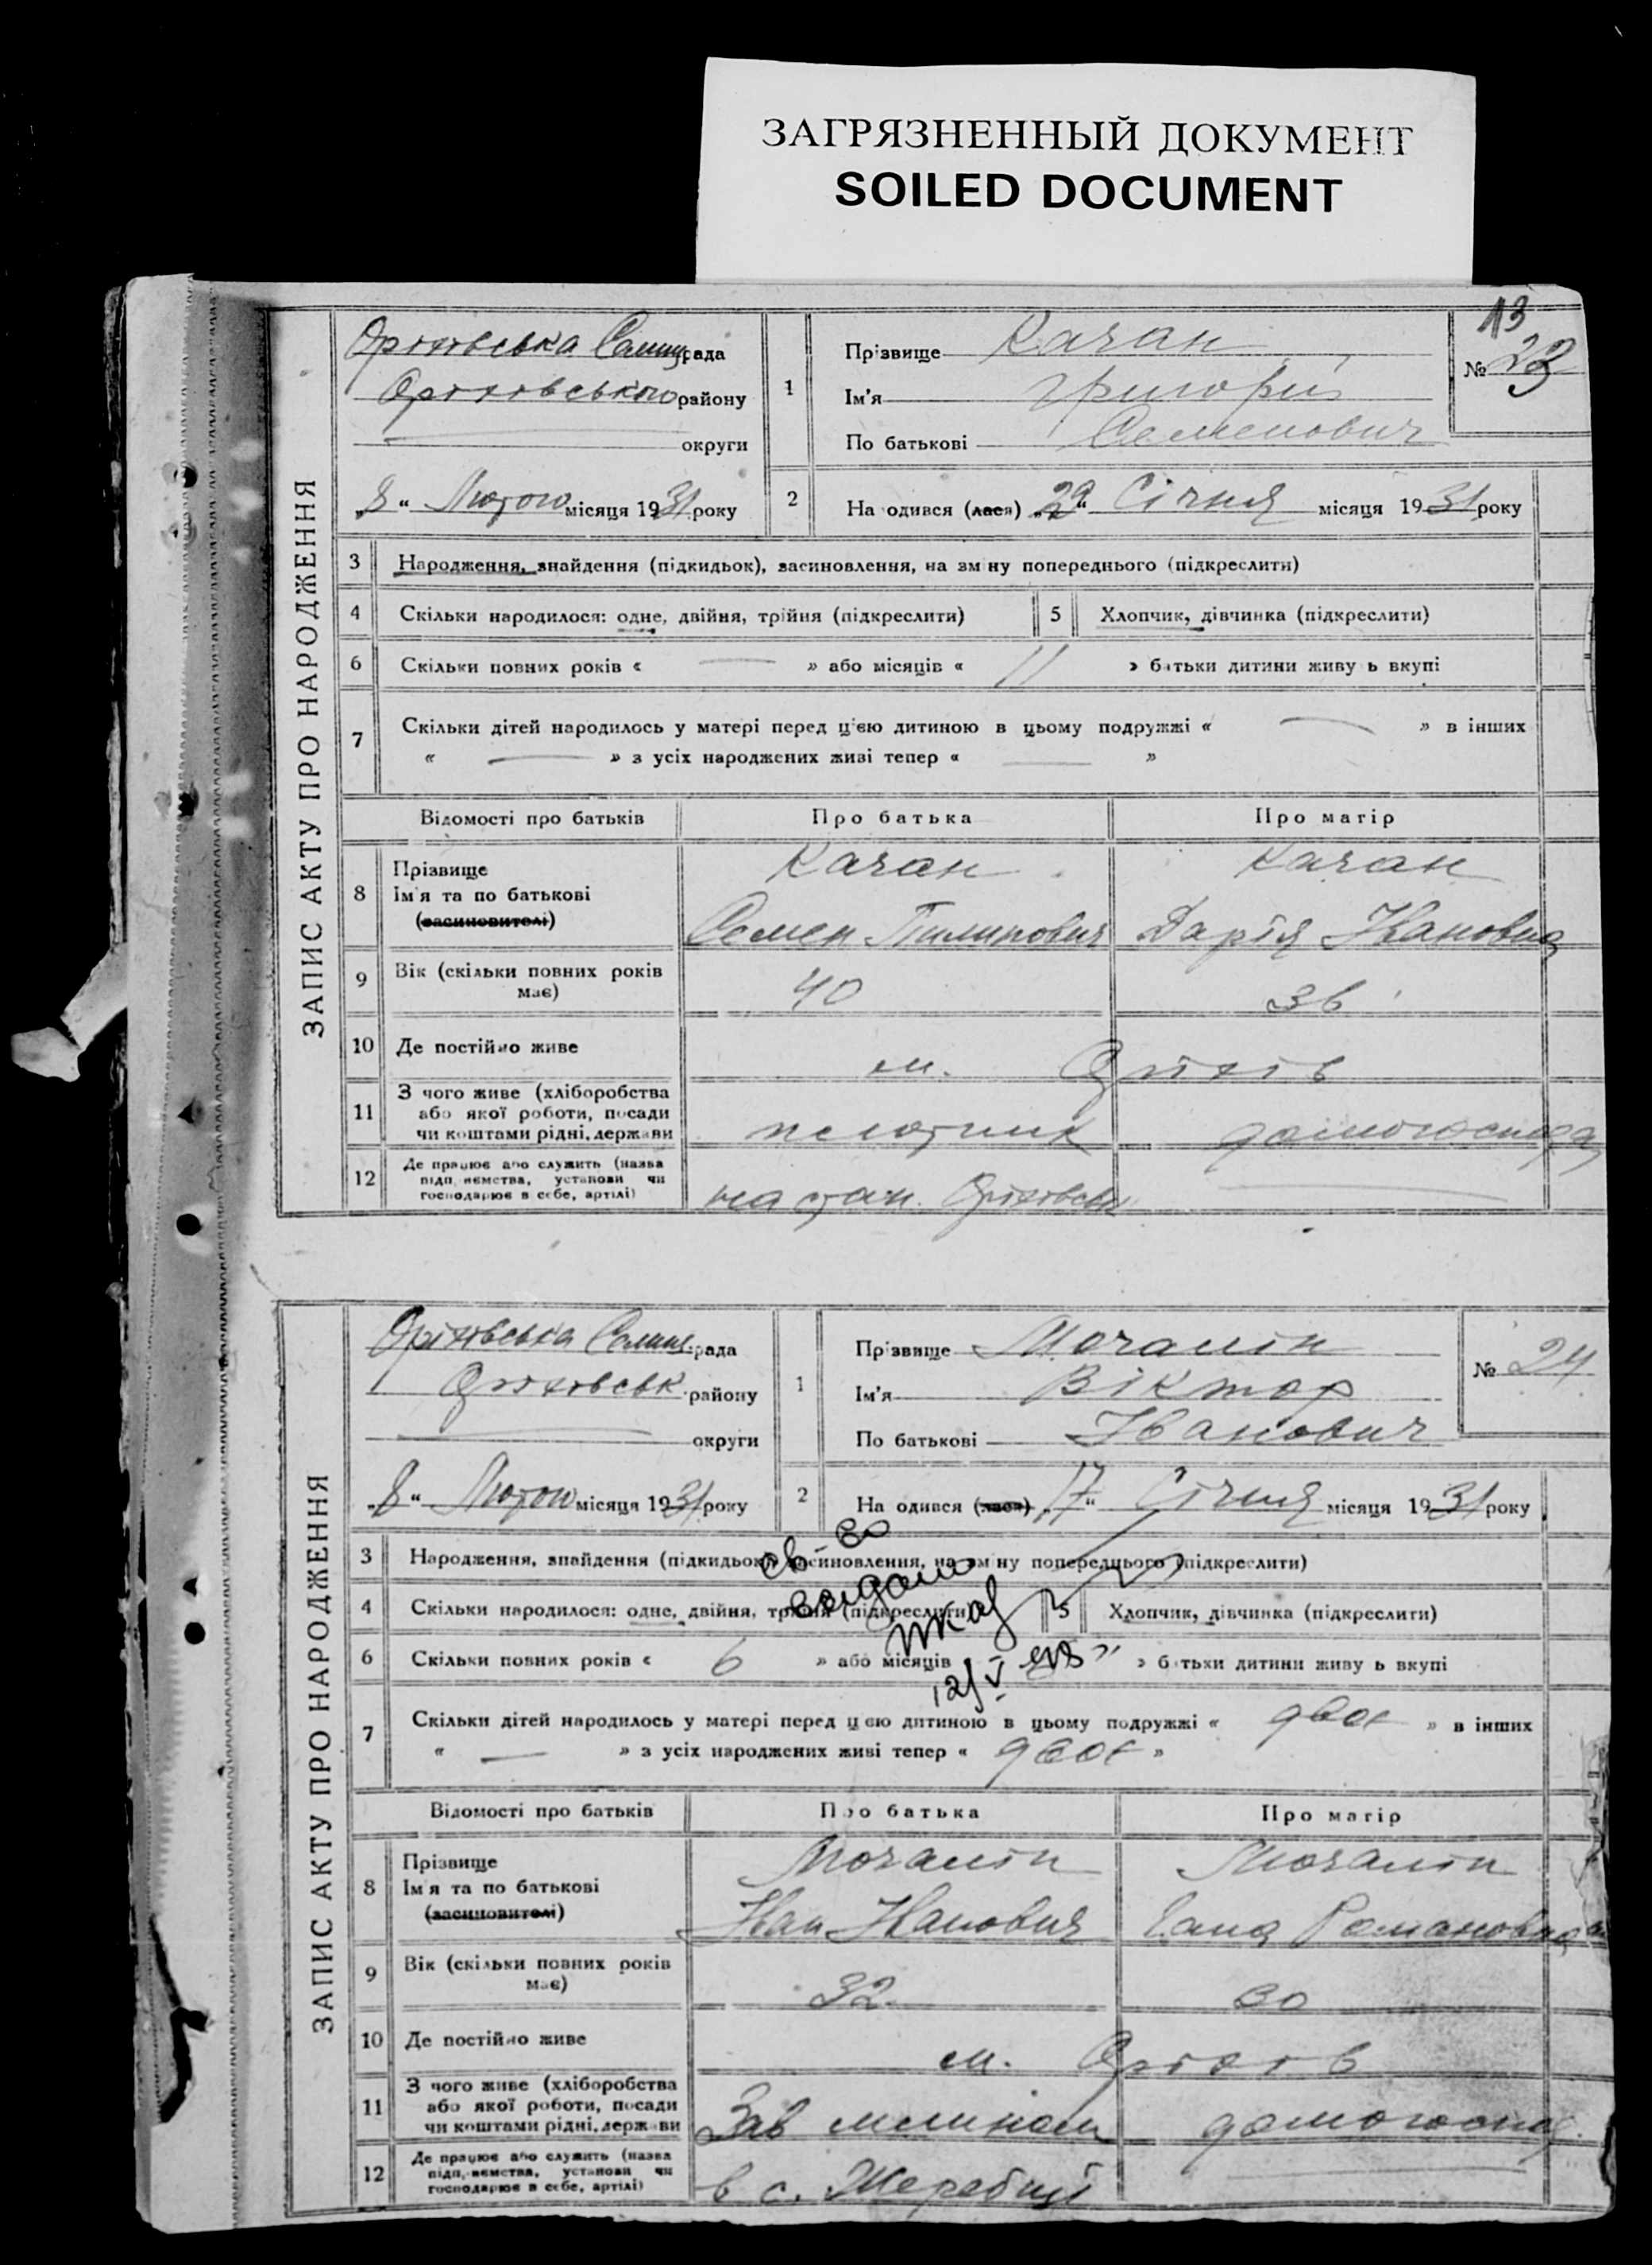 ЗАГРЯЗНЕННЫЙ ДОКУМЕНТ
SOILED DOCUMENT
13
ЗАПИС АКТУ ПРО НАРОДЖЕННЯ
Оріхівська Селищ рада
Оріхівського району
округи
„8“ Лютого місяця 1931 року
1
Прізвище Качан
Ім'я Григорій
По батькові Семенович
№ 23
2
На одився (лася) „29“ Січня місяця 1931 року
3 Народження, знайдення (підкидьок), засиновлення, на зм ну попереднього (підкреслити)
4 Скільки народилося: одне, двійня, трійня (підкреслити) 5 Хлопчик, дівчинка (підкреслити)
6 Скільки повних років « — » або місяців « 11 » батьки дитини живу ь вкупі
7 Скільки дітей народилось у матері перед ц'єю дитиною в цьому подружжі « — » в інших
« — » з усіх народжених живі тепер « — »
Відомості про батьків Про батька Про матір
8 Прізвище Качан Качан
Ім'я та по батькові
(засиновителі) Семен Пилипович Дарія Ивановна
9 Вік (скільки повних років має) 40 36
10 Де постійно живе м. Оріхів
11 З чого живе (хліборобства
або якої роботи, посади
чи коштами рідні, держави
домогоспод
12 Де працює або служить (назва
підп иємства, установи чи
господарює в себе, артілі) на стан. Оріхівськ
ЗАПИС АКТУ ПРО НАРОДЖЕННЯ
Оріхівська Селищ. рада
Оріхівськ. району
округи
„8“ Лютого місяця 1931 року
1
Пр звище Мочалін
Ім'я Віктор
По батькові Иванович
№ 24
2
На одився (лася) „17“ Січня місяця 1931 року
3 Народження, знайдення (підкидьок), засиновлення, на зм ну попереднього (підкреслити)
4 Скільки народилося: одне, двійня, трійня (підкреслити) 5 Хлопчик, дівчинка (підкреслити)
св-во
видано
6 Скільки повних років « 6 » або місяців » батьки дитини живу ь вкупі
12/V
7 Скільки дітей народилось у матері перед цєю дитиною в цьому подружжі « двоє » в інших
« — » з усіх народжених живі тепер « двоє »
Відомості про батьків Про батька Про матір
8 Прізвище Мочалін Мочалін
Ім'я та по батькові
(засиновителі) Иван Иванович Романовна
9 Вік (скільки повних років має) 32 30
10 Де постійно живе м. Оріхів
11 З чого живе (хліборобства
або якої роботи, посади
чи коштами рідні, держ ви Зав млином домогоспод.
12 Де працює або служить (назва
підп иємства, установи чи
господарює в себе, артілі) в с. Жеребці